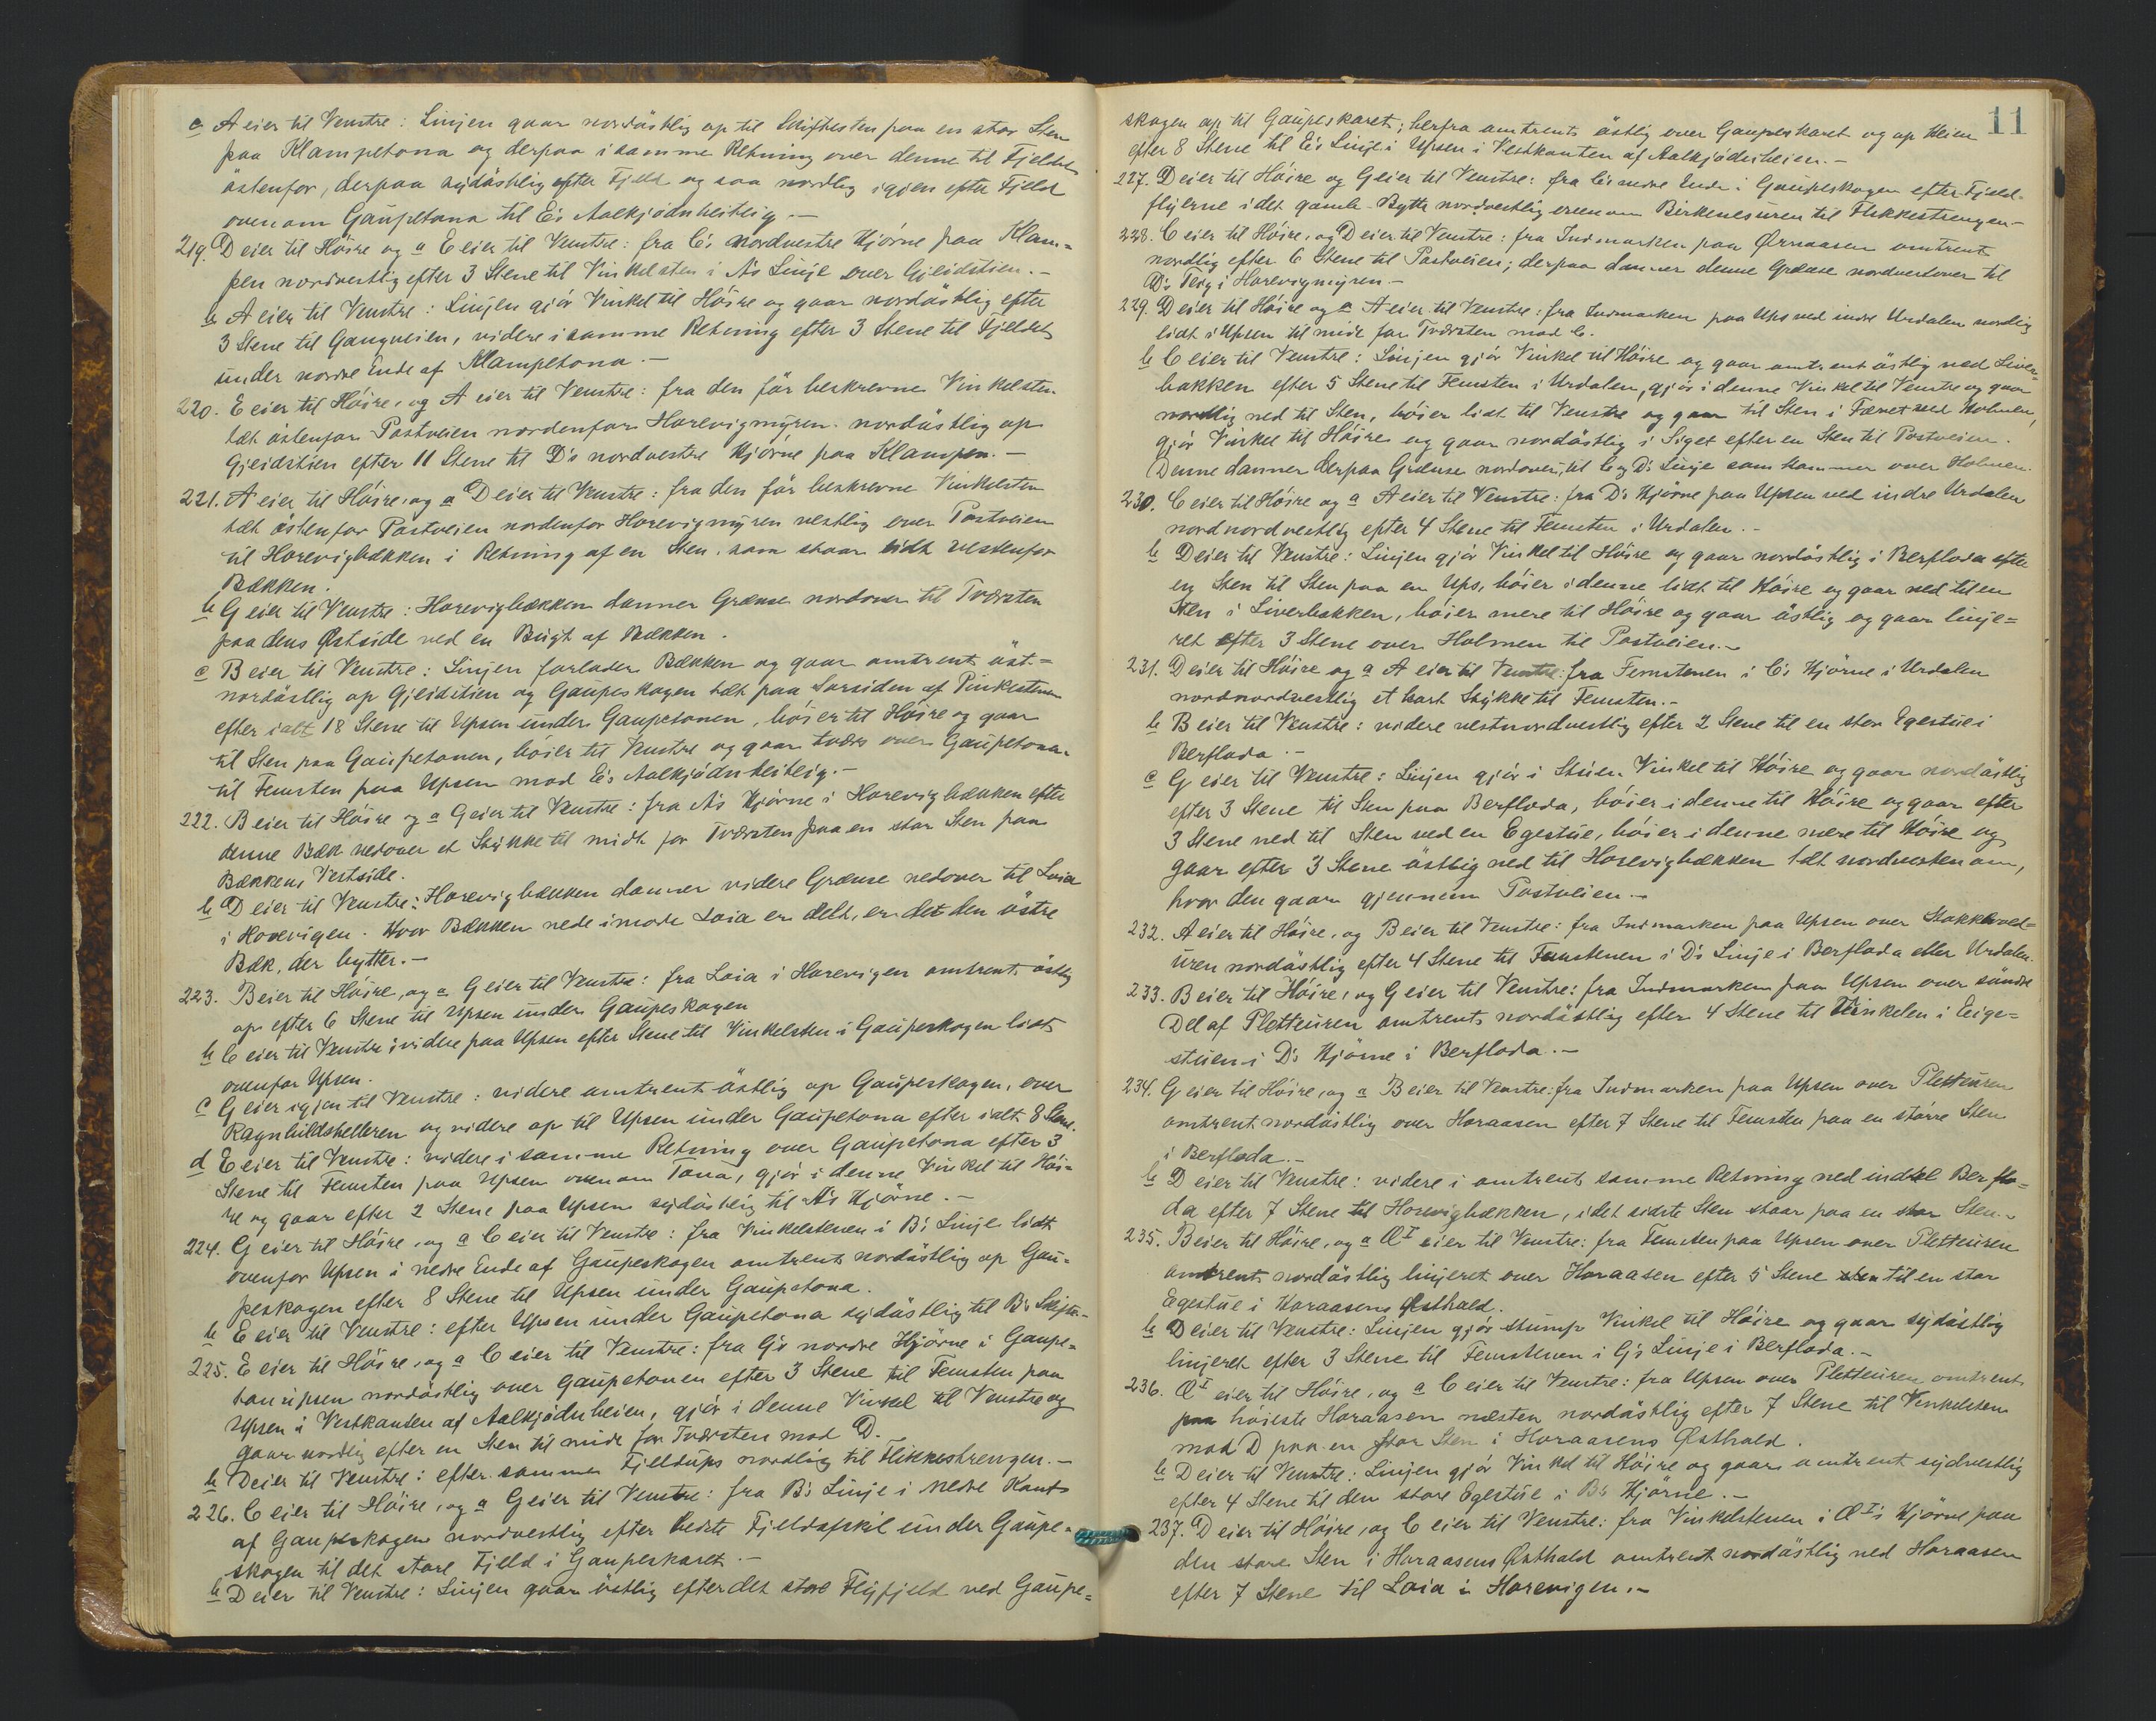 c A eier til Venstre: Linjen gaar nordöstlig op til Skiftesten paa en stor Sten
paa Klampetona og derpaa i samme Retning over denne til Fjeldet
östenfor, derpaa sydöstlig efter Fjeld og saa nordlig igjen efter Fjeld
ovenom Gaupetona til E's Aalkjödnheiteig.—
219. D eier til Höire og a E eier til Venstre: fra C's nordvestre Hjörne paa Klam=
pen nordvestlig efter 3 Stene til Vinkelsten i A's Linje over Gjeidstien.—
b A eier til Venstre: Linjen gjör Vinkel til Höire og gaar nordöstlig efter
3 Stene til Gangveien, videre i samme Retning efter 3 Stene til Fjeldet
under nordre Ende af Klampetona.—
220. E eier til Höire, og A eier til Venstre: fra den för beskrevne Vinkelsten
tæt östenfor Postveien nordenfor Horevigmyren nordöstlig op
Gjeidstien efter 11 Stene til D's nordvestre Hjörne paa Klampen.—
221. A eier til Höire, og a D eier til Venstre: fra den för beskrevne Vinkelsten
tæt östenfor Postveien nordenfor Horevigmyren vestlig over Postveien
til Horevigbækken i Retning af en Sten, som staar lidt vestenfor
Bækken.
b G eier til Venstre: Horevigbækken danner Grænse nordover til Tværsten
paa dens Østside ved en Bugt af Bækken.
c B eier til Venstre: Linjen forlader Bækken og gaar omtrent öst=
nordöstlig op Gjeidstien og Gaupeskogen tæt paa Sorsiden af Pinkestenen
efter ialt 18 Stene til Upsen under Gaupetonen, böier til Höire og gaar
til Sten paa Gaupetonen, böier til Venstre og gaar tværs over Gaupetona
til Femsten paa Upsen mod E's Aalkjödnheiteig.—
222. B eier til Höire og a G eier til Venstre: fra A's Hjörne i Horevigbækken efter
denne Bæk nedover et Stykke til midt for Tværsten paa en stor Sten paa
Bækkens Vestside.
b D eier til Venstre: Horevigbækken danner videre Grænse nedover til Loia
i Horevigen. Hvor Bækken nede imode Loia er delt, er det den östre
Bæk, der bytter.—
223. B eier til Höire, og a G eier til Venstre: fra Loia i Horevigen omtrent östlig
op efter 6 Stene til Upsen under Gaupeskogen
b C eier til Venstre: videre paa Upsen efter Stene til Vinkelsten i Gaupeskogen lidt
ovenfor Upsen.
c G eier igjen til Venstre: videre omtrent östlig op Gaupeskogen, over
Ragnhildshelleren og videre op til Upsen under Gaupetona efter ialt 8 Stene.
d E eier til Venstre: videre i samme Retning over Gaupetona efter 3
Stene til Femsten paa Upsen ovenom Tona, gjör i denne Vinkel til Höi=
re og gaar efter 2 Stene paa Upsen sydöstlig til A's Hjörne.—
224. G eier til Höire, og a C eier til Venstre: fra Vinkelstenen i B's Linje lidt
ovenfor Upsen i nedre Ende af Gaupeskogen omtrent nordöstlig op Gau=
peskogen efter 8 Stene til Upsen under Gaupetona.
b E eier til Venstre: efter Upsen under Gaupetona sydöstlig til B's Skifte.
225. E eier til Höire, og a C eier til Venstre: fra G's nordre Hjörne i Gaupe=
tonupsen nordöstlig over Gaupetonen efter 3 Stene til Femsten paa
Upsen i Vestkanten af Aalkjödnheien, gjör i denne Vinkel til Venstre og
gaar nordlig efter en Sten til midt for Tværsten mod D.
b D eier til Venstre: efter samme Fjeldups nordlig til Flikkestrengen.—
226. C eier til Höire, og a G eier til Venstre: fra B's Linje i nedre Kant
af Gaupeskogen nordvestlig efter bedste Fjeldafskil under Gaupe=
skogen til det store Fjeld i Gaupeskaret.—
b D eier til Venstre: Linjen gaar östlig efter det store Flyfjeld ved Gaupe=
11
skogen op til Gaupeskaret; herfra omtrent östlig over Gaupeskaret og op Heien
efter 8 Stene til E's Linje i Upsen i Vestkanten af Aalkjödnheien.—
227. D eier til Höire og G eier til Venstre: fra C's nedre Ende i Gaupeskogen efter Fjeld-
flyerne i det gamle Bytte nordvestlig ovenom Birkenesuren til Flikkestrengen—
228. C eier til Höire, og D eier til Venstre: fra Indmarken paa Ørnaasen omtrent
nordlig efter 6 Stene til Postveien; derpaa danner denne Grænse nordvestover til
D's Teig i Horevigmyren.—
229. D eier til Höire og a A eier til Venstre: fra Indmarken paa Ups ved indre Urdalen nordlig
lidt i Upsen til midt for Tværsten mod C.
b C eier til Venstre: Linjen gjör Vinkel til Höire og gaar omtrent östlig ned Liver=
bakken efter 5 Stene til Femsten i Urdalen, gjör i denne Vinkel til Venstre og gaar
nordlig ned til Sten, böier lidt til Venstre og gaar til Sten i Færet ved Holmen,
gjör Vinkel til Höire og gaar nordöstlig i Siget efter en Sten til Postveien.
Denne danner derpaa Grænse nordover til C og D's Linje som kommer over Holmen.
230. C eier til Höire og a A eier til Venstre: fra D's Hjörne paa Upsen ved indre Urdalen
nordnordvestlig efter 4 Stene til Femsten i Urdalen.—
b D eier til Venstre: Linjen gjör Vinkel til Höire og gaar nordöstlig i Berfloda efter
en Sten til Sten paa en Ups, böier i denne lidt til Höire og gaar ned til en
Sten i Liverbakken, böier mere til Höire og gaar östlig og gaar linje=
ret efter 3 Stene over Holmen til Postveien.—
231. D eier til Höire og a A eier til Venstre: fra Femstenen i C's Hjörne i Urdalen
nordnordvestlig et kort Stykke til Femsten.—
b B eier til Venstre: videre vestnordvestlig efter 2 Stene til en stor Egestue i
Berfloda.—
c G eier til Venstre: Linjen gjör i Stuen Vinkel til Höire og gaar nordöstlig
efter 3 Stene til Sten paa Berfloda, böier i denne til Höire og gaar efter
3 Stene ned til Sten ved en Egestue, böier i denne mere til Höire og
gaar efter 3 Stene östlig ned til Horevigbækken tæt nordvestenom,
hvor den gaar gjennem Postveien.—
232. A eier til Höire, og B eier til Venstre: fra Indmarken paa Upsen over Stokkevel=
uren nordöstlig efter 4 Stene til Femstenen i D's Linje i Berfloda eller Urdalen.
233. B eier til Höire, og G eier til Venstre: fra Indmarken paa Upsen over söndre
Del af Pletteuren omtrent nordöstlig efter 4 Stene til Vinkelen i Eige=
stuen i D's Hjörne i Berfloda.—
234. G eier til Höire, og a B eier til Venstre: fra Indmarken paa Upsen over Pletteuren
omtrent nordöstlig over Horaasen efter 7 Stene til Femsten paa en större Sten
i Berfloda.—
b D eier til Venstre: videre i omtrent samme Retning ned indtil Berflo=
da efter 7 Stene til Horevigbækken, idet sidste Sten staar paa en stor Sten.—
235. B eier til Höire, og a Æ I eier til Venstre: fra Femsten paa Upsen over Pletteuren
omtrent nordöstlig linjeret over Horaasen efter 5 Stene til en stor
Egestue i Horaasens Østhald.
b D eier til Venstre: Linjen gjör stump Vinkel til Höire og gaar sydöstlig
linjeret efter 3 Stene til Femstenen i G's Linje i Berfloda.—
236. Æ I eier til Höire, og a C eier til Venstre: fra Upsen over Pletteuren omtrent
paa höieste Horaasen næsten nordöstlig efter 7 Stene til Vinkelsten
mod D paa en stor Sten i Horaasens Østhald.
b D eier til Venstre: Linjen gjör Vinkel til Höire og gaar omtrent sydvestlig
efter 4 Stene til den store Egestue i B's Hjörne.—
237. D eier til Höire, og C eier til Venstre: fra Vinkelstenen i Æ I's Hjörne paa
den store Sten i Horaasens Østhald omtrent nordöstlig ned Horaasen
efter 7 Stene til Loia i Horevigen.—